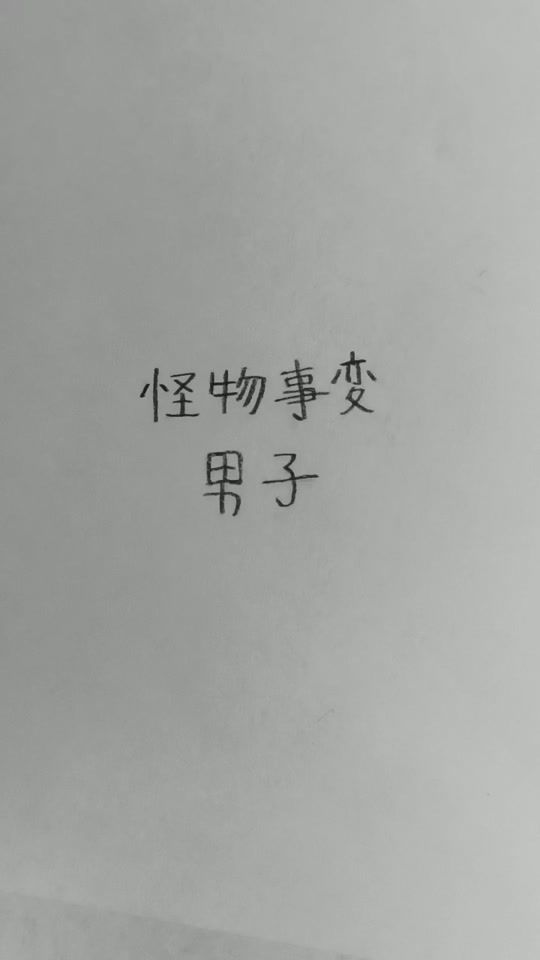 怪物事変
男子